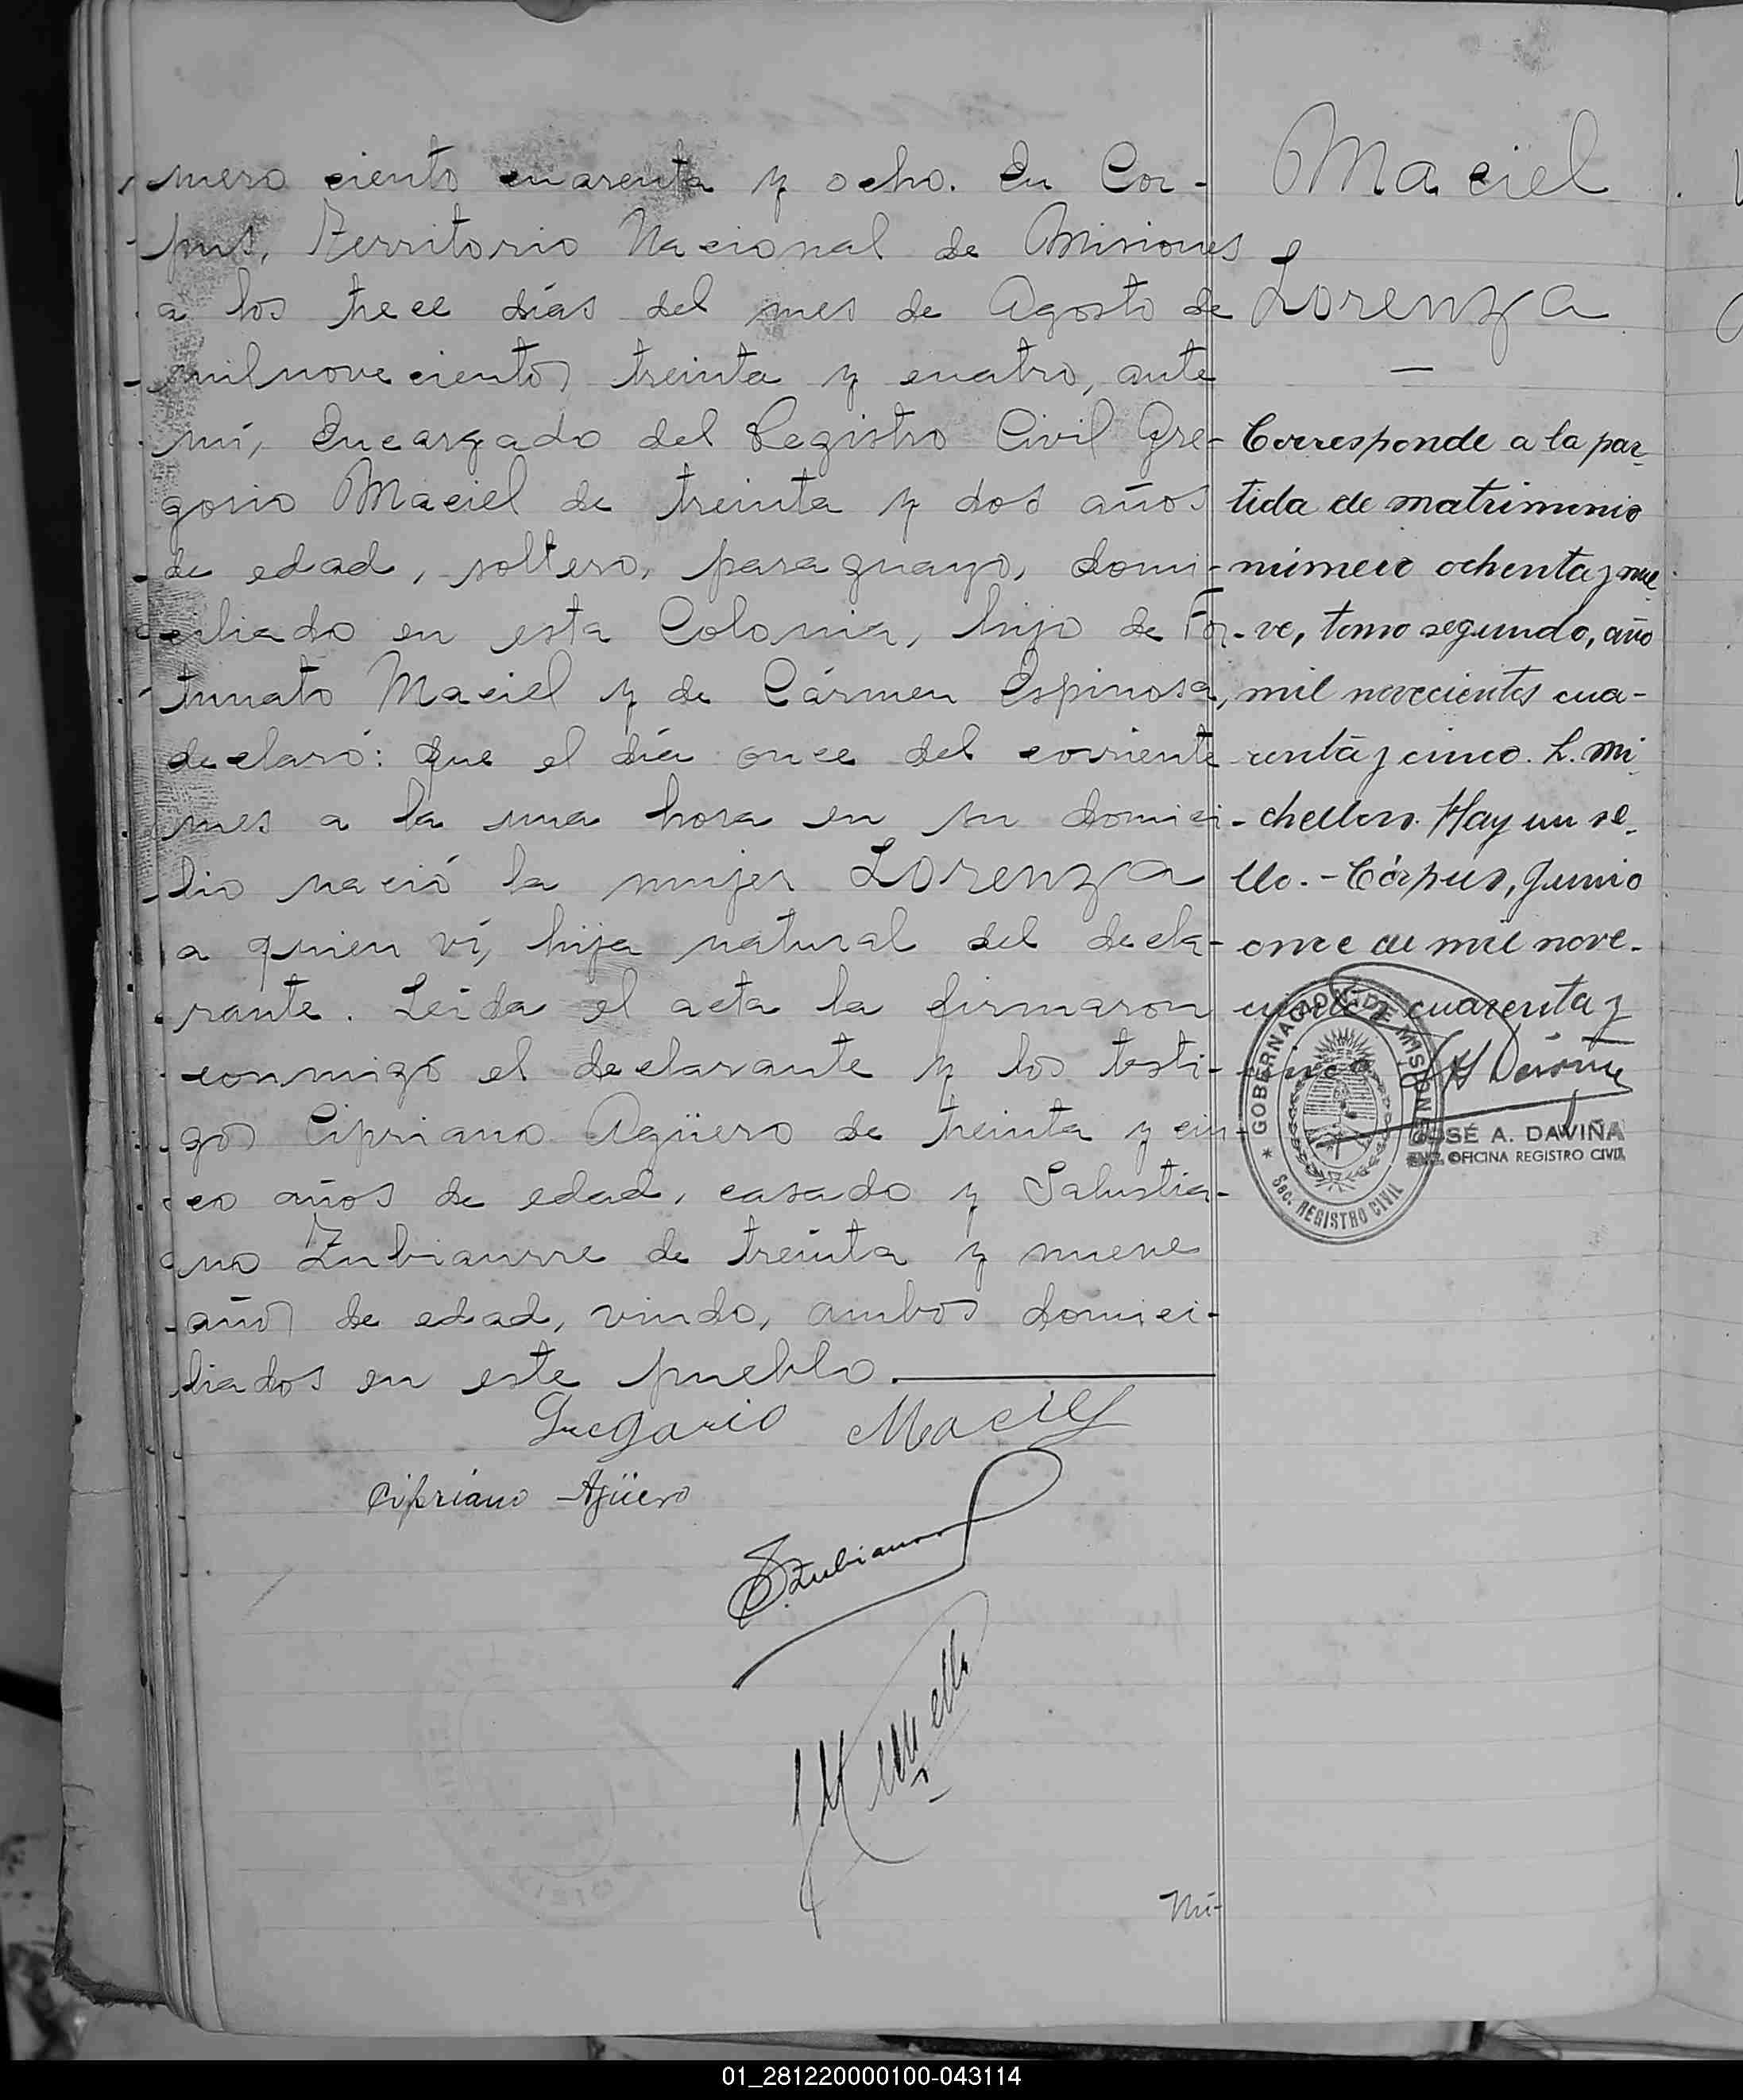 mero ciento cuarenta y ocho. En Cor-
pus, Territorio Nacional de Misiones
a los trece días del mes de Agosto de
mil novecientos treinta y cuatro, ante
mí, Encargado del Registro Civil Gre-
gorio Maciel de treinta y dos años
de edad, soltero, paraguayo, domi-
ciliado en esta Colonia, hijo de For-
tunato Maciel y de Cármen Espinosa,
declaró: Que el día once del corriente
mes a la una hora en su domici-
lio nació la mujer Lorenza
a quien ví, hija natural del decla-
rante. Leída el acta la firmaron
conmigo el declarante y los testi-
gos Cipriano Agüero de treinta y cin-
co años de edad, casado y Salustia-
no Zubiaurre de treinta y nueve
años de edad, viudo, ambos domici-
liados en este pueblo.
Gregario Maciel
Cipriano Agüero
S. Zubiaurre
Nú-
Maciel
Lorenza
—
Corresponde a la par-
tida de matrimonio
número ochenta y nue-
ve, tomo segundo, año
mil novecientos cua-
renta y cinco. L. Mi-
chellon. Hay un se-
llo. - Córpus, Junio
once de mil nove-
cientos cuarenta y
cinco
GOBERNACION DE MISIONES
Sec. REGISTRO CIVIL
JOSÉ A. DAVIÑA
ENC. OFICINA REGISTRO CIVIL
01_281220000100-043114